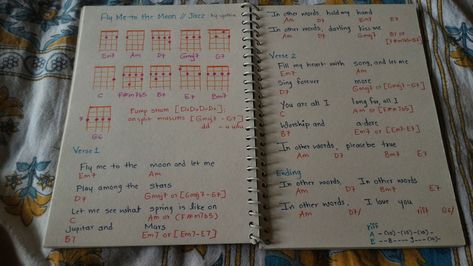 Fly Me to the Moon // Jazz by
Em7 Am D7 Gmaj7 G7
C F#m7b5 B7 E7 Bm7
G6
Pump strum [D↓D↓D↓D↓];
except measures [Gmaj7 - G7]
dd - u udu
Verse 1
Fly me to the moon and let me
Em7 Am
Play among the stars
D7 Gmaj7 or [Gmaj7 - G7]
Let me see what spring is like on
C Am or (F#m7b5)
Jupitar and Mars
B7 Em7 or [Em7 - E7]
In other words hold my hand
Am D7 Bm7 E7
In other words, darling kiss me
Am D7 Gmaj7 or B7
or [F#m7b5 - B7]
Verse 2
Fill my heart with song, and let me
Em7 Am
Sing forever more
D7 Gmaj7 or [Gmaj7 - G7]
You are all I long for, all I
C Am or [F#m7b5]
Worship and adore
B7 Em7 or [Em7 - E7]
In other words, please be true
Am D7 Bm7 E7
Ending
In other words, In other words
Am D7 Bm7 E7
In other words, I love you
Am D7/ riff G6/
riff
A -(10)-(15)-(10)-
E --8----)----(10)-